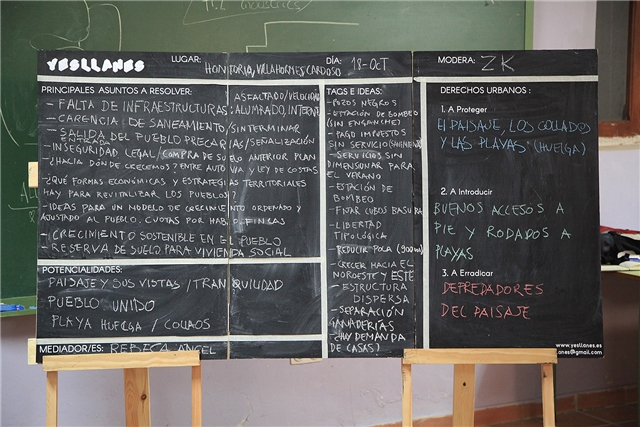 YESLLANES
LUGAR: HONTORIA, VILLAHORMES, CARDOSO
DÍA: 18-OCT
MODERA: ZK
PRINCIPALES ASUNTOS A RESOLVER:
- FALTA DE INFRAESTRUCTURAS: ASFALTADO/VELOCIDAD
ALUMBRADO, INTERNET
- CARENCIA DE SANEAMIENTO/SIN TERMINAR
- SALIDA DEL PUEBLO PRECARIAS/SEÑALIZACIÓN
ENTRADA
- INSEGURIDAD LEGAL/COMPRA DE SUELO ANTERIOR PLAN
- ¿HACIA DÓNDE CRECEMOS? ENTRE AUTOVIA Y LEY DE COSTAS
- ¿QUÉ FORMAS ECONÓMICAS Y ESTRATEGIAS TERRITORIALES
HAY PARA REVITALIZAR LOS PUEBLOS?
- IDEAS PARA UN MODELO DE CRECIMIENTO ORDENADO Y
AJUSTADO AL PUEBLO. CUOTAS POR HAB. O FINCAS
- CRECIMIENTO SOSTENIBLE EN EL PUEBLO
- RESERVA DE SUELO PARA VIVIENDA SOCIAL
POTENCIALIDADES:
PAISAJE Y SUS VISTAS / TRANQUILIDAD
PUEBLO UNIDO
PLAYA HUELGA /
MEDIADOR/ES: REBECA ANGEL
TAGS E IDEAS:
- POZOS NEGROS
- ESTACIÓN DE BOMBEO
(SIN ENGANCHE)
- PAGO IMPUESTOS
SIN SERVICIO
- SERVICIOS SIN
DIMENSIONAR PARA
EL VERANO
- ESTACIÓN DE
BOMBEO
- FIJAR CUBOS BASURA
- LIBERTAD
TIPOLÓGICA
- REDUCIR POLA
- CRECER HACIA EL
NOROESTE Y ESTE
- ESTRUCTURA
DISPERSA
- SEPARACIÓN
GANADERÍAS
- ¿HUY DEMANDA
DE CASAS?
DERECHOS URBANOS :
1. A Proteger
El PAISAJE, LOS COLLADOS
Y LAS PLAYAS (HUELGA)
2. A Introducir
BUENOS ACCESOS A
PIE Y RODADOS A
PLAYAS
3. A Erradicar
DEPREDADORES
DEL PAISAJE
www.yesllanes.es